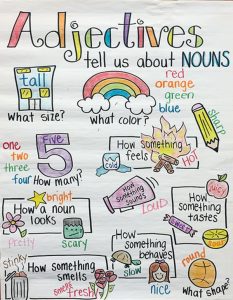 Adjectives
tell us about NOUNS
tall
What size?
What color?
red
orange
green
blue
sharp
one
two
three
four
Five
5
How many?
How something
feels
cold
HOT
bright
How a noun
looks
pretty
scary
How
something
sounds
LOUD
juicy
How something
tastes
sour
How something
behaves
slow
nice
round
What shape?
stinky
How something
smells
fresh